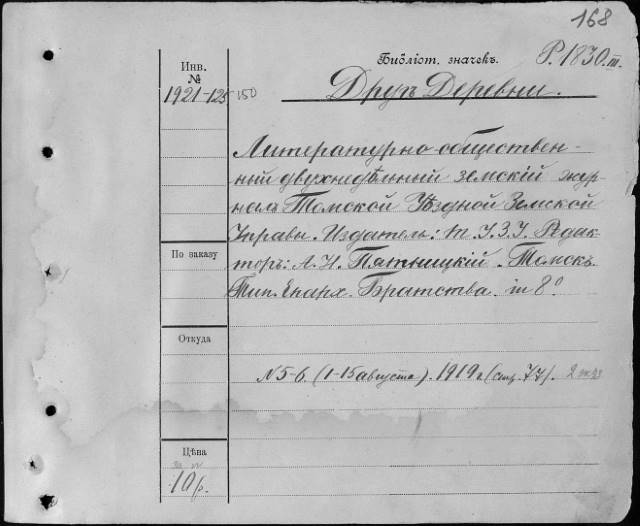 168
Библіот. значекъ. Р. 1830 III.
Инв.
№
1921-125-150
Другъ Деревни.
Литературно-обществен-
ный двухнедѣльный земскій жур-
налъ Томской Уѣздной Земской
Управы. Издатель: Т. У. З. У. Редак-
торъ: А. Н. Пятницкій. Томскъ
По заказу
Тип. Епарх. Братства. in 8º
Откуда
N 5-6. (1-15 августа). 1919 г. (стр. 77). 2 экз
Цѣна
10 р.